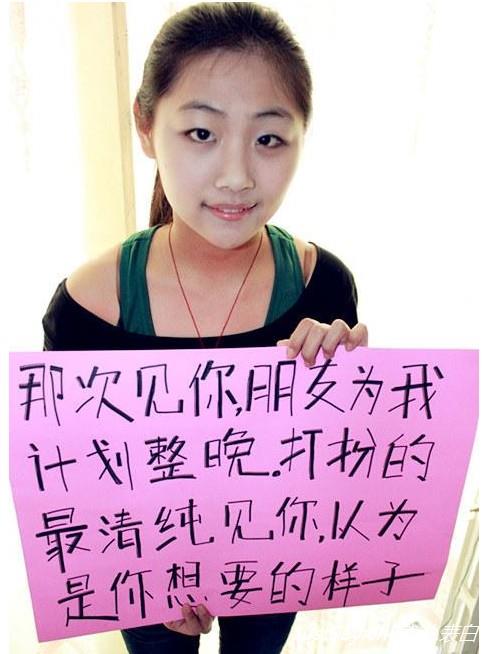 那次见你,朋友为我
计划整晚.打扮的
最清纯见你,以为
是你想要的样子
表白